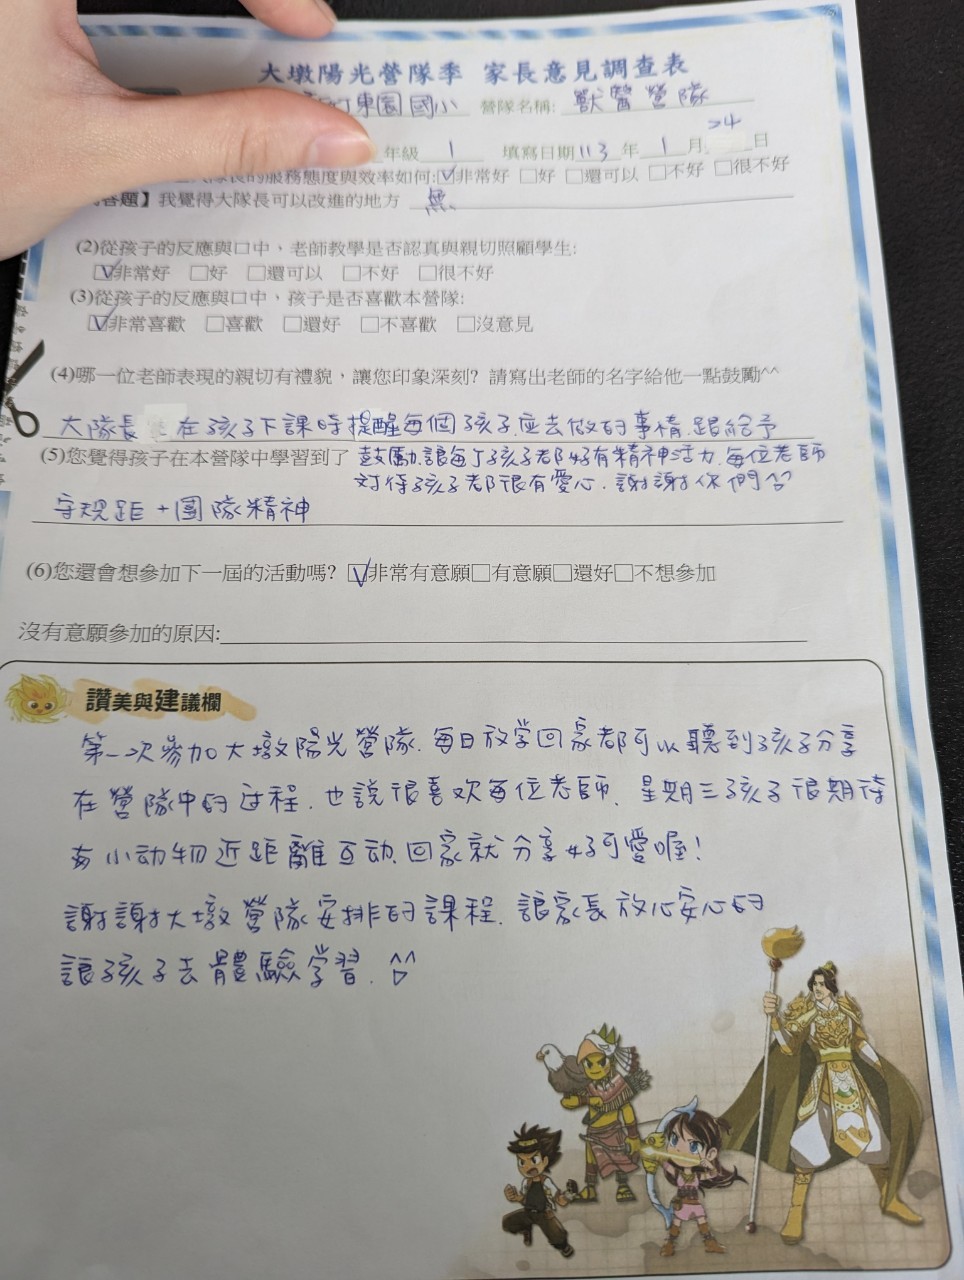 大墩陽光營隊季 家長意見調查表
東園國小 營隊名稱: 獸醫營隊
年級 1 填寫日期113年1月24日
的服務態度與效率如何:☑非常好 □好 □還可以 □不好 □很不好
答題】我覺得大隊長可以改進的地方 無
(2)從孩子的反應與口中，老師教學是否認真與親切照顧學生:
☑非常好 □好 □還可以 □不好 □很不好
(3)從孩子的反應與口中，孩子是否喜歡本營隊:
☑非常喜歡 □喜歡 □還好 □不喜歡 □沒意見
(4)哪一位老師表現的親切有禮貌，讓您印象深刻? 請寫出老師的名字給他一點鼓勵^^
大隊長 在孩子下課時提醒每個孩子應去做的事情.跟給予
(5)您覺得孩子在本營隊中學習到了 鼓勵.讓每个孩子都好有精神活力.每位老師
对待孩子都很有愛心.謝謝你們^^
守規距+團隊精神
(6)您還會想參加下一屆的活動嗎? ☑非常有意願□有意願□還好□不想參加
沒有意願參加的原因:
讚美與建議欄
第一次參加大墩陽光營隊.每日放学回家都可以聽到孩子分享
在營隊中的过程.也說很喜欢每位老師.星期三孩子很期待
有小动物近距離互动.回家就分享好可愛喔!
謝謝大墩營隊安排的課程.讓家長放心安心的
讓孩子去體驗学習.^^